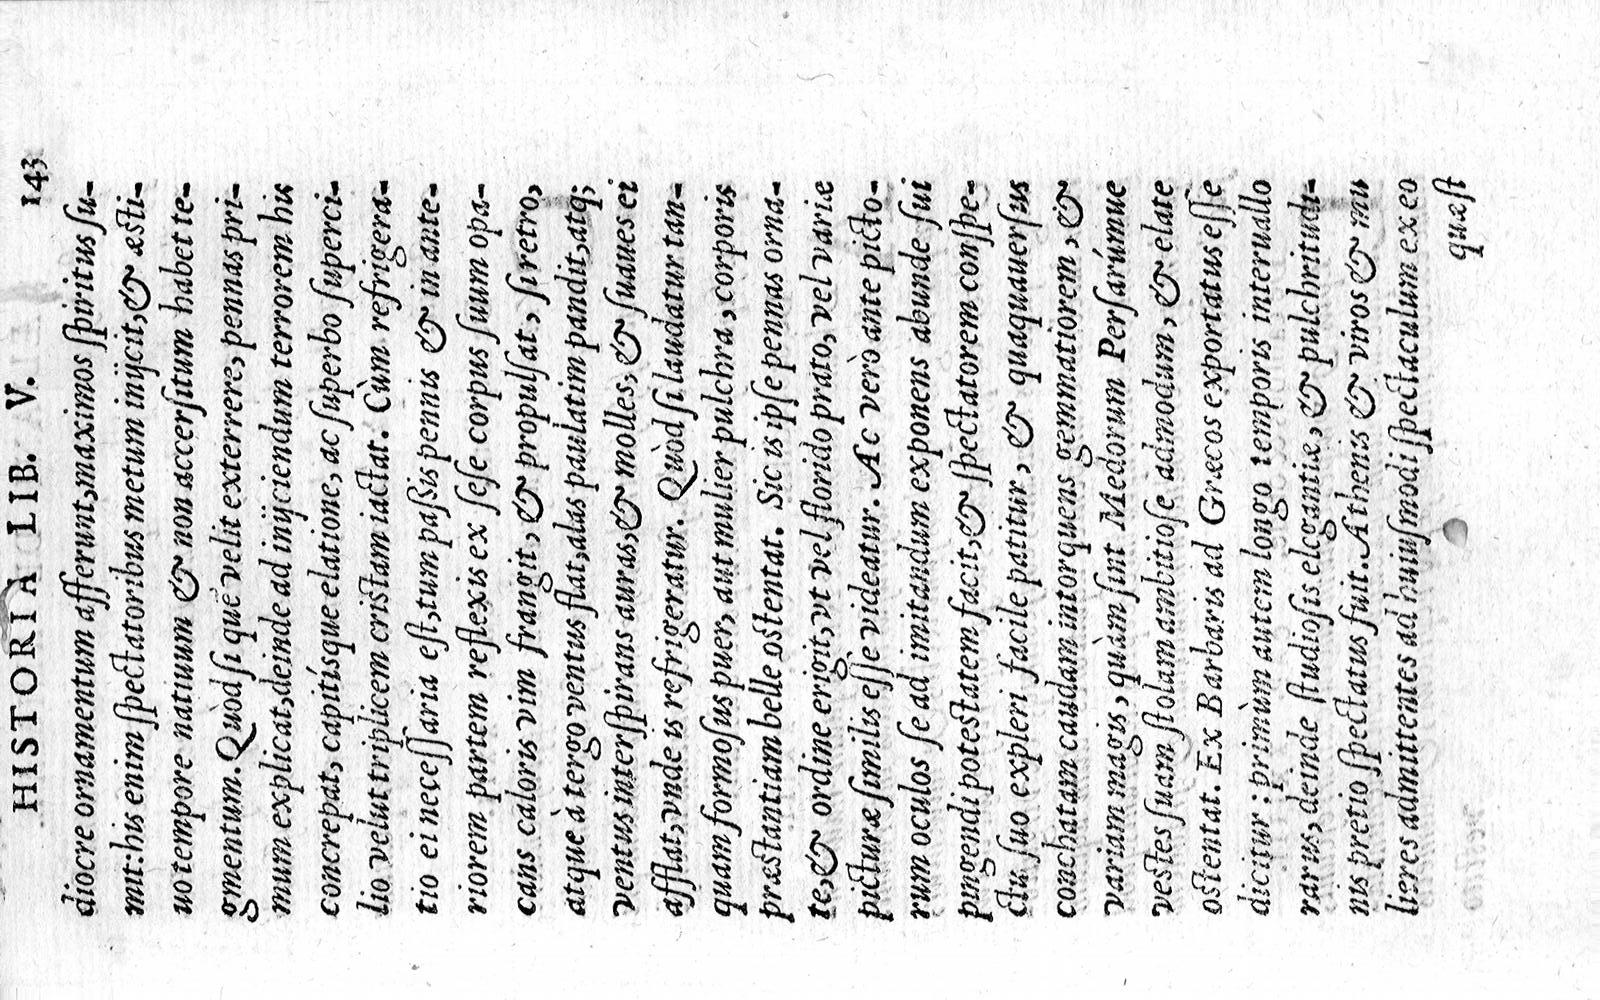 HISTORIA LIB. V. 143
diocre ornamentum afferunt, maximos ſpiritus ſu-
mit: his enim ſpectatoribus metum inijcit, & æſti-
uo tempore natiuum & non accerſitum habet te-
gmentum. Quòd ſi quẽ velit exterrere, pennas pri-
mum explicat, deinde ad inijciendum terrorem his
concrepat, capitísque elatione, ac ſuperbo ſuperci-
lio velut triplicem criſtam iactat. Cùm refrigera-
tio ei neceſſaria eſt, tum paßis pennis & in ante-
riorem partem reflexis ex ſeſe corpus ſuum opa-
cans caloris vim frangit, & propulſat, ſi retro,
atque à tergo ventus flat, alas paulatim pandit, atq;
ventus interſpirans auras, & molles, & ſuaues ei
afflat, vnde is refrigeratur. Quòd ſi laudatur tan-
quam formoſus puer, aut mulier pulchra, corporis
præſtantiam belle oſtentat. Sic is ipſe pennas orna-
te, & ordine erigit, vt vel florido prato, vel variæ
picturæ ſimilis eſſe videatur. Ac verò ante picto-
rum oculos ſe ad imitandum exponens abunde ſui
pingendi poteſtatem facit, & ſpectatorem conſpe-
ctu ſuo expleri facile patitur, & quaquauerſus
conchatam caudam intorquens gemmatiorem, &
variam magis, quàm ſint Medorum Perſarúmue
veſtes ſuam ſtolam ambitioſe admodum, & elate
oſtentat. Ex Barbaris ad Græcos exportatus eſſe
dicitur: primùm autem longo temporis interuallo
rarus, deinde ſtudioſis elegantiæ, & pulchritudi-
nis pretio ſpectatus fuit. Athenis & viros & mu
lieres admittentes ad huiuſmodi ſpectaculum ex eo
quæſt